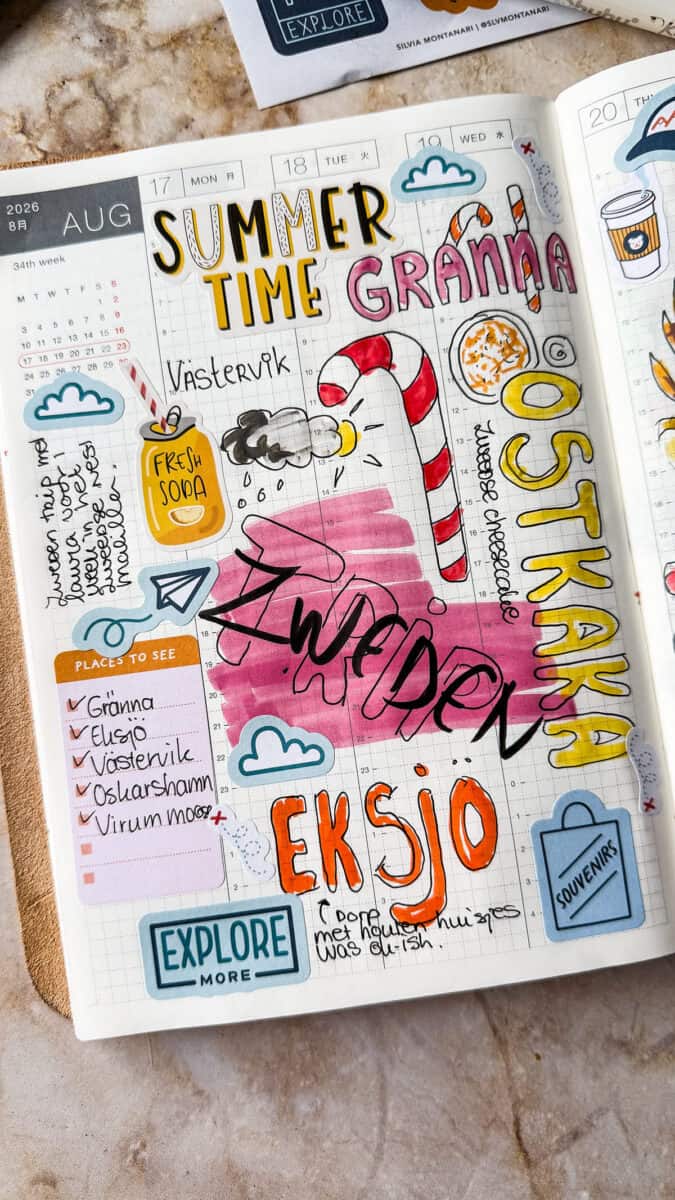 EXPLORE
SILVIA MONTANARI | @SLVMONTANARI
2026
8月
AUG
17 MON 月
18 TUE 火
19 WED 水
20
34th week
M T W T F S S
1 2
3 4 5 6 7 8 9
10 11 12 13 14 15 16
17 18 19 20 21 22 23
24 25 26 27 28 29
31
SUMMER
TIME
GRÄNNA
Västervik
FRESH
SODA
OSTKAKA
Zweedse cheesecake
Zweden trip met
laura voor 1
week in het
zweedse
TRIP
ZWEDEN
PLACES TO SEE
Gränna
Eksjö
Västervik
Oskarshamn
Virum moose
EKSJÖ
Dorp
met houten huisjes
was ou-ish.
SOUVENIRS
EXPLORE
MORE